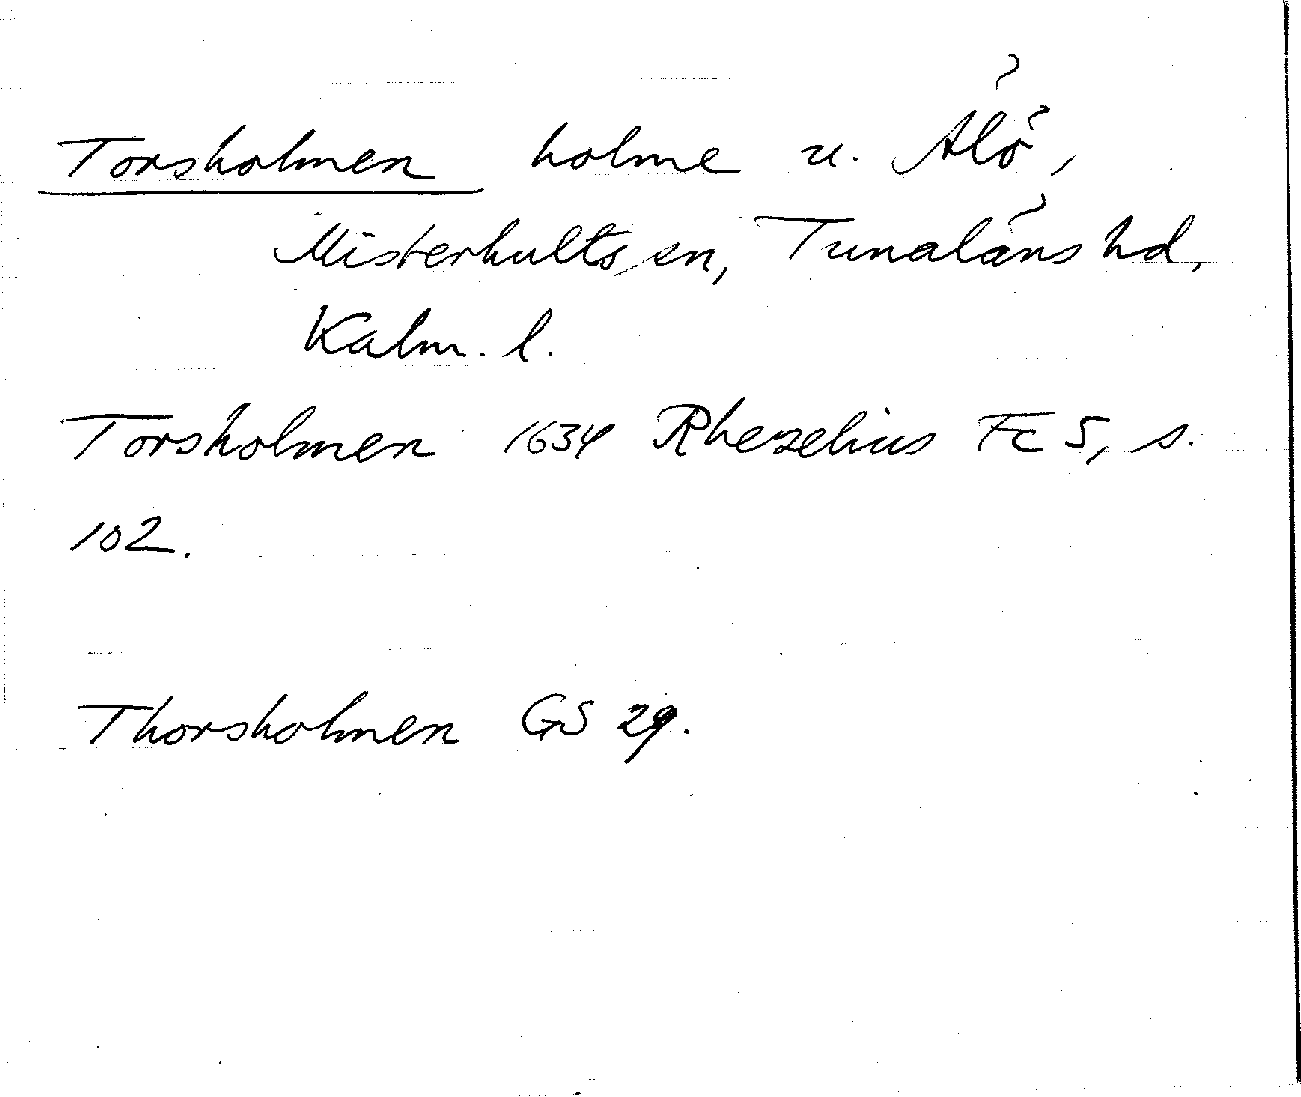 Torsholmen holme u. Älö,
Misterhults sn, Tunaläns hd,
Kalm. l.
Torsholmen 1634 Rhezelius Fc 5, s.
102.
Thorsholmen GS 29.